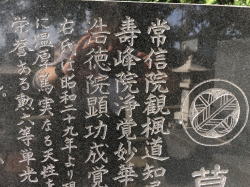 常信院観楓道知
寿峰院浄覚妙華
告徳院顕功成覚
右氏は昭和二十九年より
に温厚篤実なる天性
栄誉ある勲六等単光